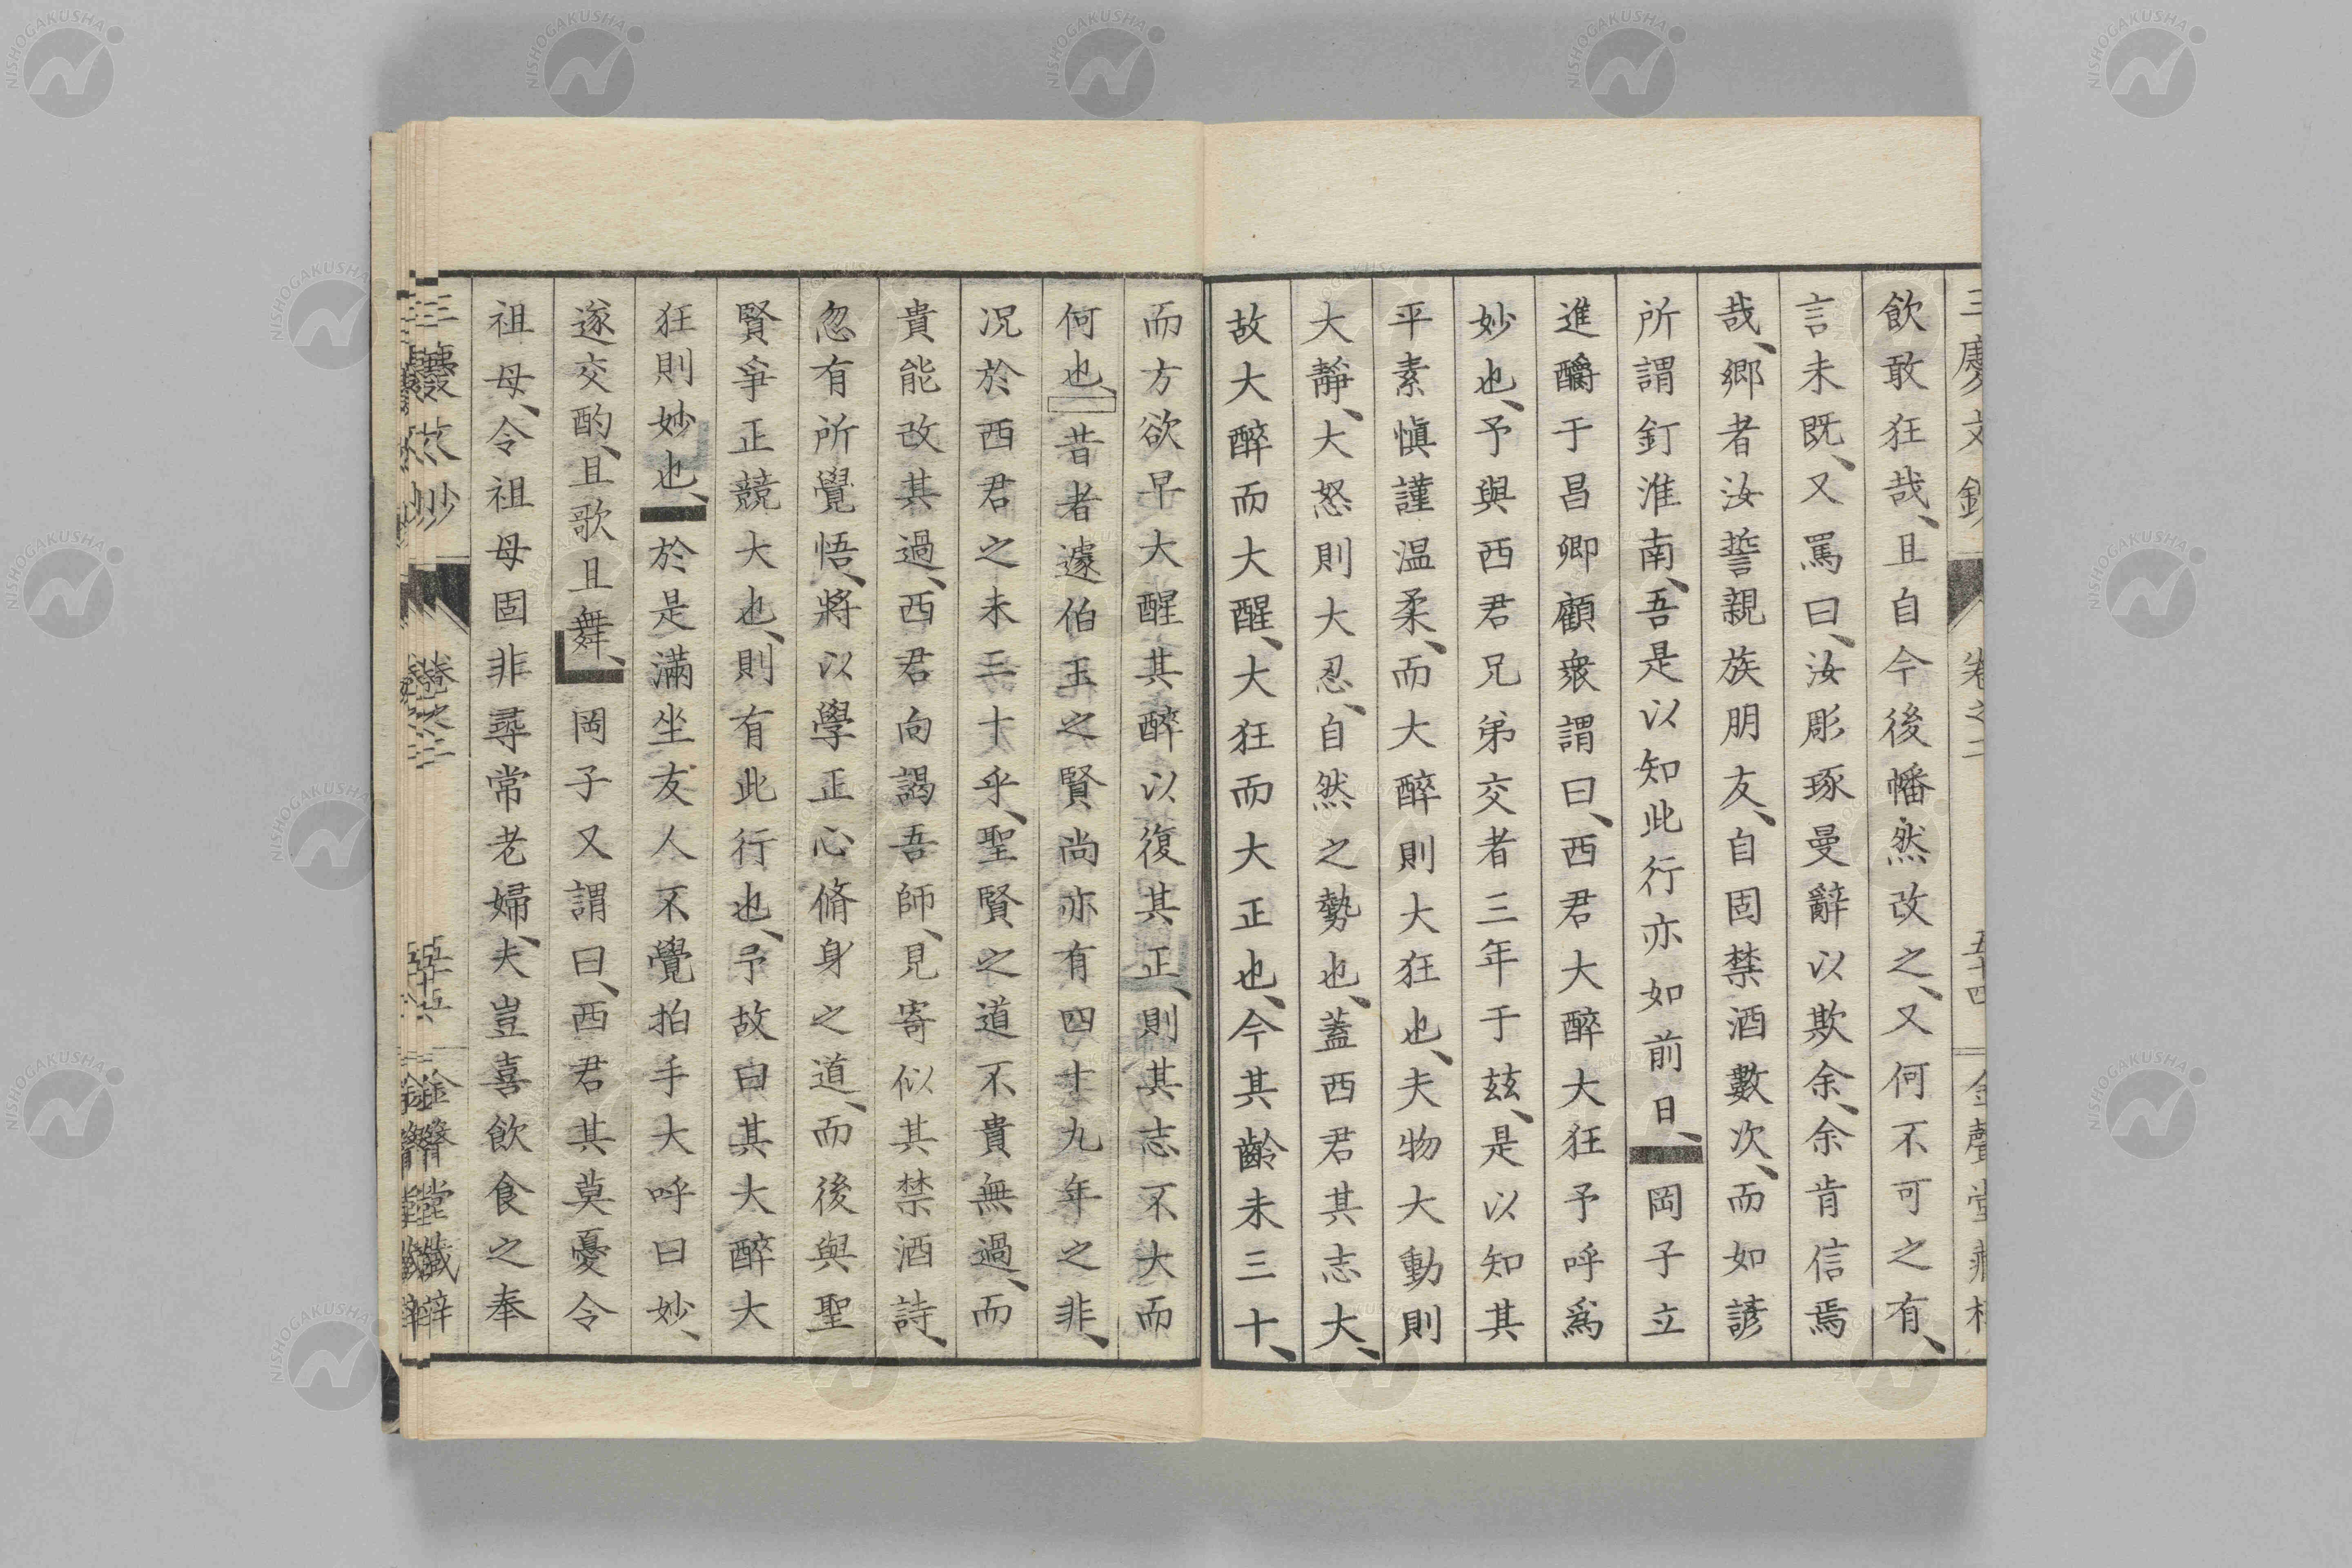 飲敢狂哉、且自今後幡然改之、又何不可之有、
言未既、又罵曰、汝彫琢曼辭以欺余、余肯信焉
哉、鄉者汝誓親族朋友、自固禁酒數次、而如諺
所謂釘淮南、吾是以知此行亦如前日、岡子立
進醻于昌卿顧衆謂曰、西君大醉大狂予呼爲
妙也、予與西君兄弟交者三年于玆、是以知其
平素愼謹温柔、而大醉則大狂也、夫物大動則
大靜、大怒則大忍、自然之勢也、蓋西君其志大、
故大醉而大醒、大狂而大正也、今其齡未三十、
而方欲早大醒其醉以復其正、則其志不大而
何也、昔者蘧伯玉之賢尚亦有四十九年之非、
况於西君之未三十乎、聖賢之道不貴無過、而
貴能改其過、西君向謁吾師、見寄似其禁酒詩、
忽有所覺悟、將以學正心脩身之道、而後與聖
賢爭正競大也、則有此行也、予故曰其大醉大
狂則妙也、於是滿坐友人不覺拍手大呼曰妙、
遂交酌、且歌且舞、岡子又謂曰、西君其莫憂令
祖母、令祖母固非尋常老婦、夫豈喜飲食之奉
NISHOGAKUSHA